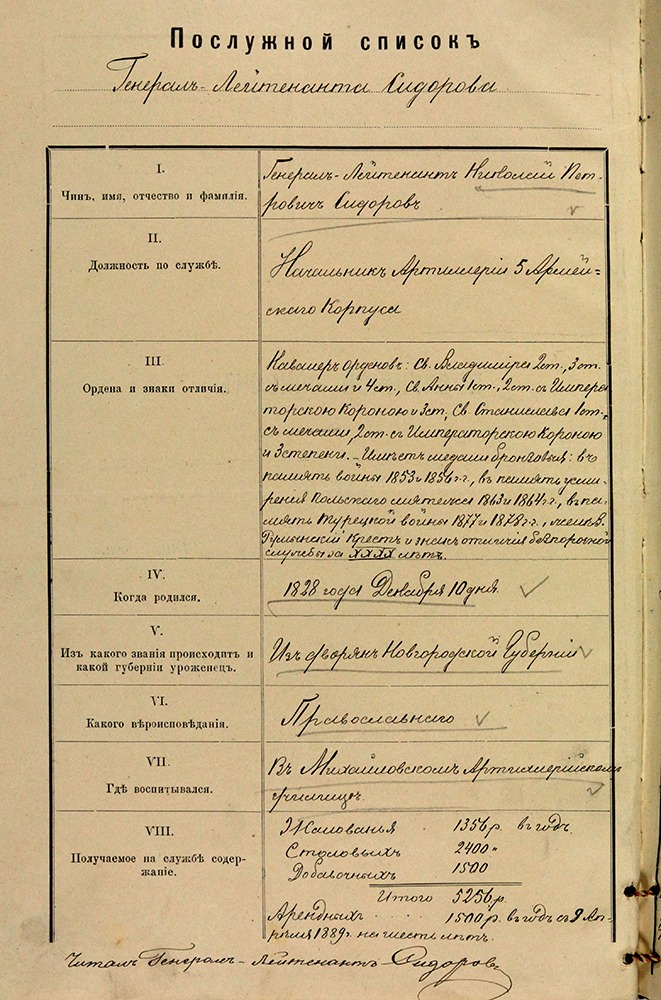 Послужной списокъ
Генералъ-Лейтенанта Сидорова
I.
Чинъ, имя, отчество и фамилія.
Генералъ-Лейтенантъ Николай Пет-
ровичъ Сидоровъ
II.
Должность по службѣ.
Начальникъ Артиллеріи 5 Армей-
скаго Корпуса
III.
Ордена и знаки отличія.
Кавалеръ орденовъ: Св. Владиміра 2 ст., 3 ст.
съ мечами и 4 ст., Св. Анны 1 ст., 2 ст. съ Импера
торскою Короною и 3 ст., Св. Станислава 1 ст.,
съ мечами, 2 ст. съ Императорскою Короною
и 3 степени. – Имѣетъ медали бронзовыя: въ
память войны 1853 и 1856 г.г., въ память усми-
ренія Польскаго мятежа 1863 и 1864 г.г., въ па-
мять Турецкой войны 1877 и 1878 г.г.,
Румынскій Крестъ и знакъ отличія безпорочной
службы за XXXX лѣтъ.
IV.
Когда родился.
1828 года Декабря 10 дня.
V.
Изъ какого званія происходитъ и
какой губерніи уроженецъ.
Изъ дворянъ Новгородской Губерніи
VI.
Какого вѣроисповѣданія.
Православнаго
VII.
Гдѣ воспитывался.
Въ Михайловскомъ Артиллерійскомъ
училищѣ.
VIII.
Получаемое на службѣ содер-
жаніе.
Жалованья 1356 р. въ годъ
Столовыхъ 2400 "
Добавочныхъ 1500
Итого 5256 р.
Арендныхъ . . . 1500 р. въ годъ съ 9 Ап-
рѣля 1889 г. на шесть лѣтъ.
Читалъ Генералъ-Лейтенантъ Сидоровъ